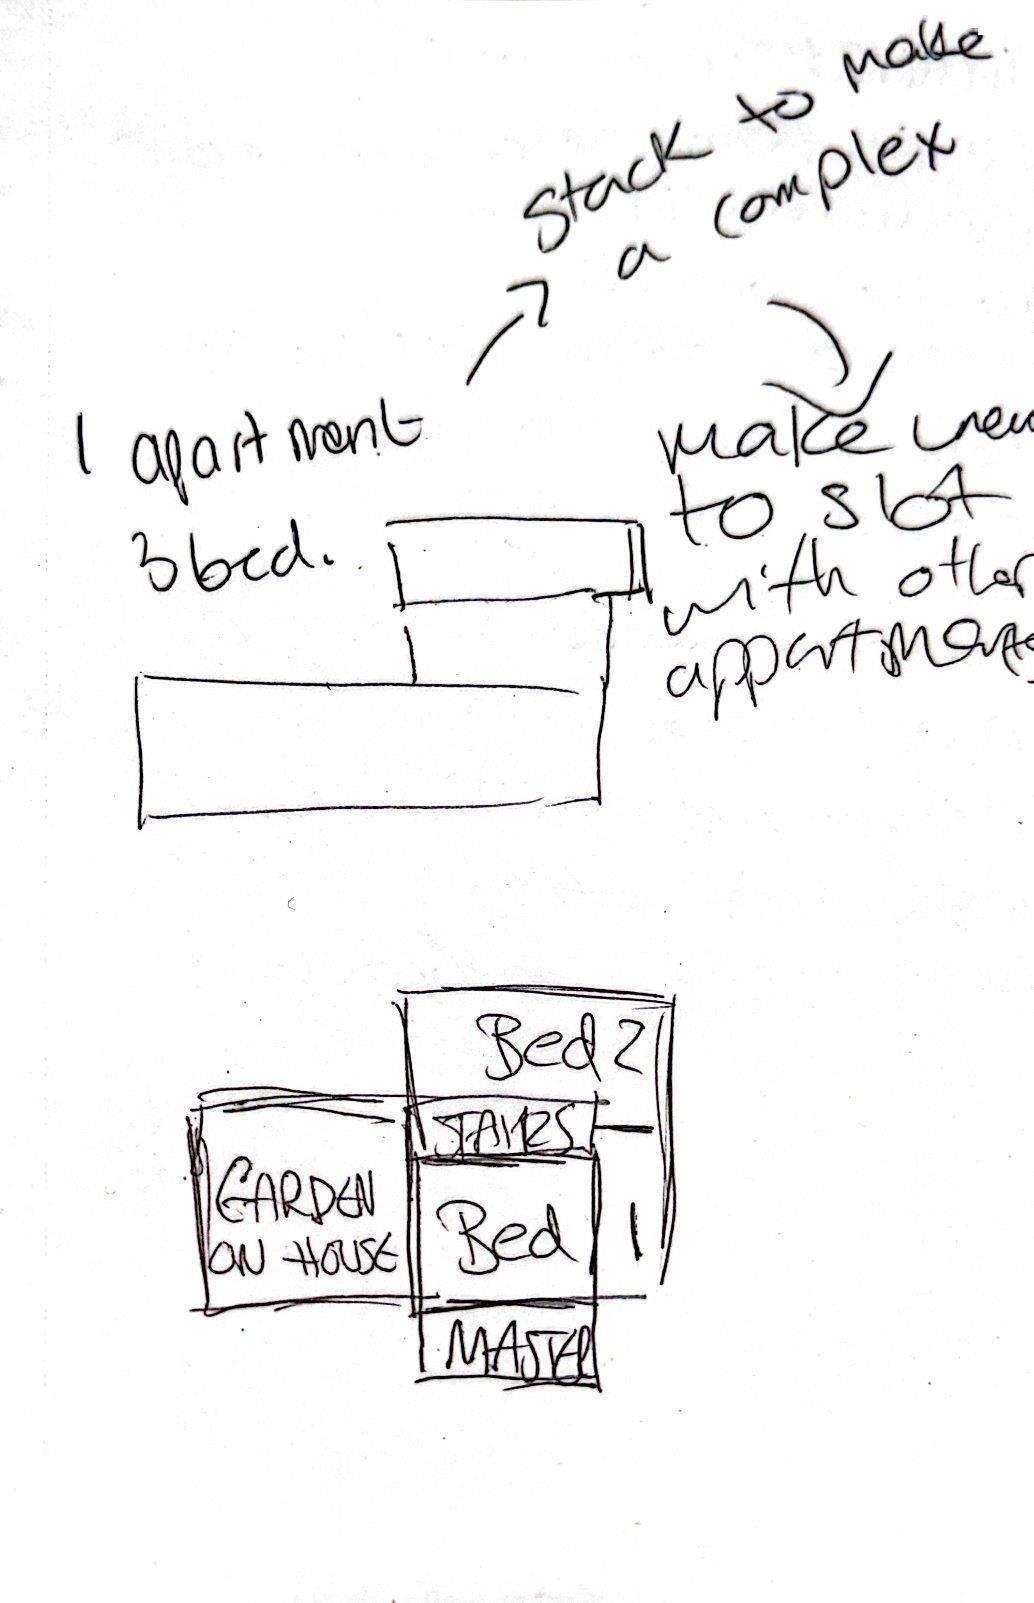 stack to make
a complex
1 apartment
3 bed.
make
to slot
with other
appartments
Bed 2
STAIRS
GARDEN
ON HOUSE
Bed 1
MASTER